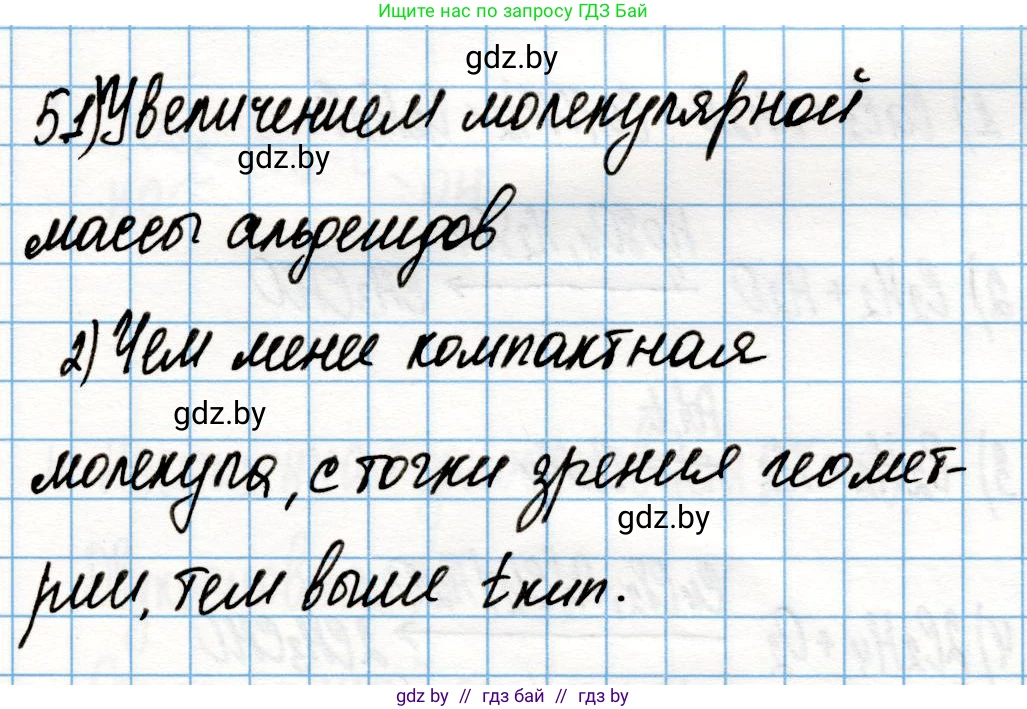 Ищите нас по запросу ГДЗ Бай
gdz.by
5.1) Увеличением молекулярной
gdz.by
массы альдегидов
2) Чем менее компактная
gdz.by
молекула, с точки зрения геомет-
gdz.by
рии, тем выше tкип.
gdz.by // гдз бай // гдз by